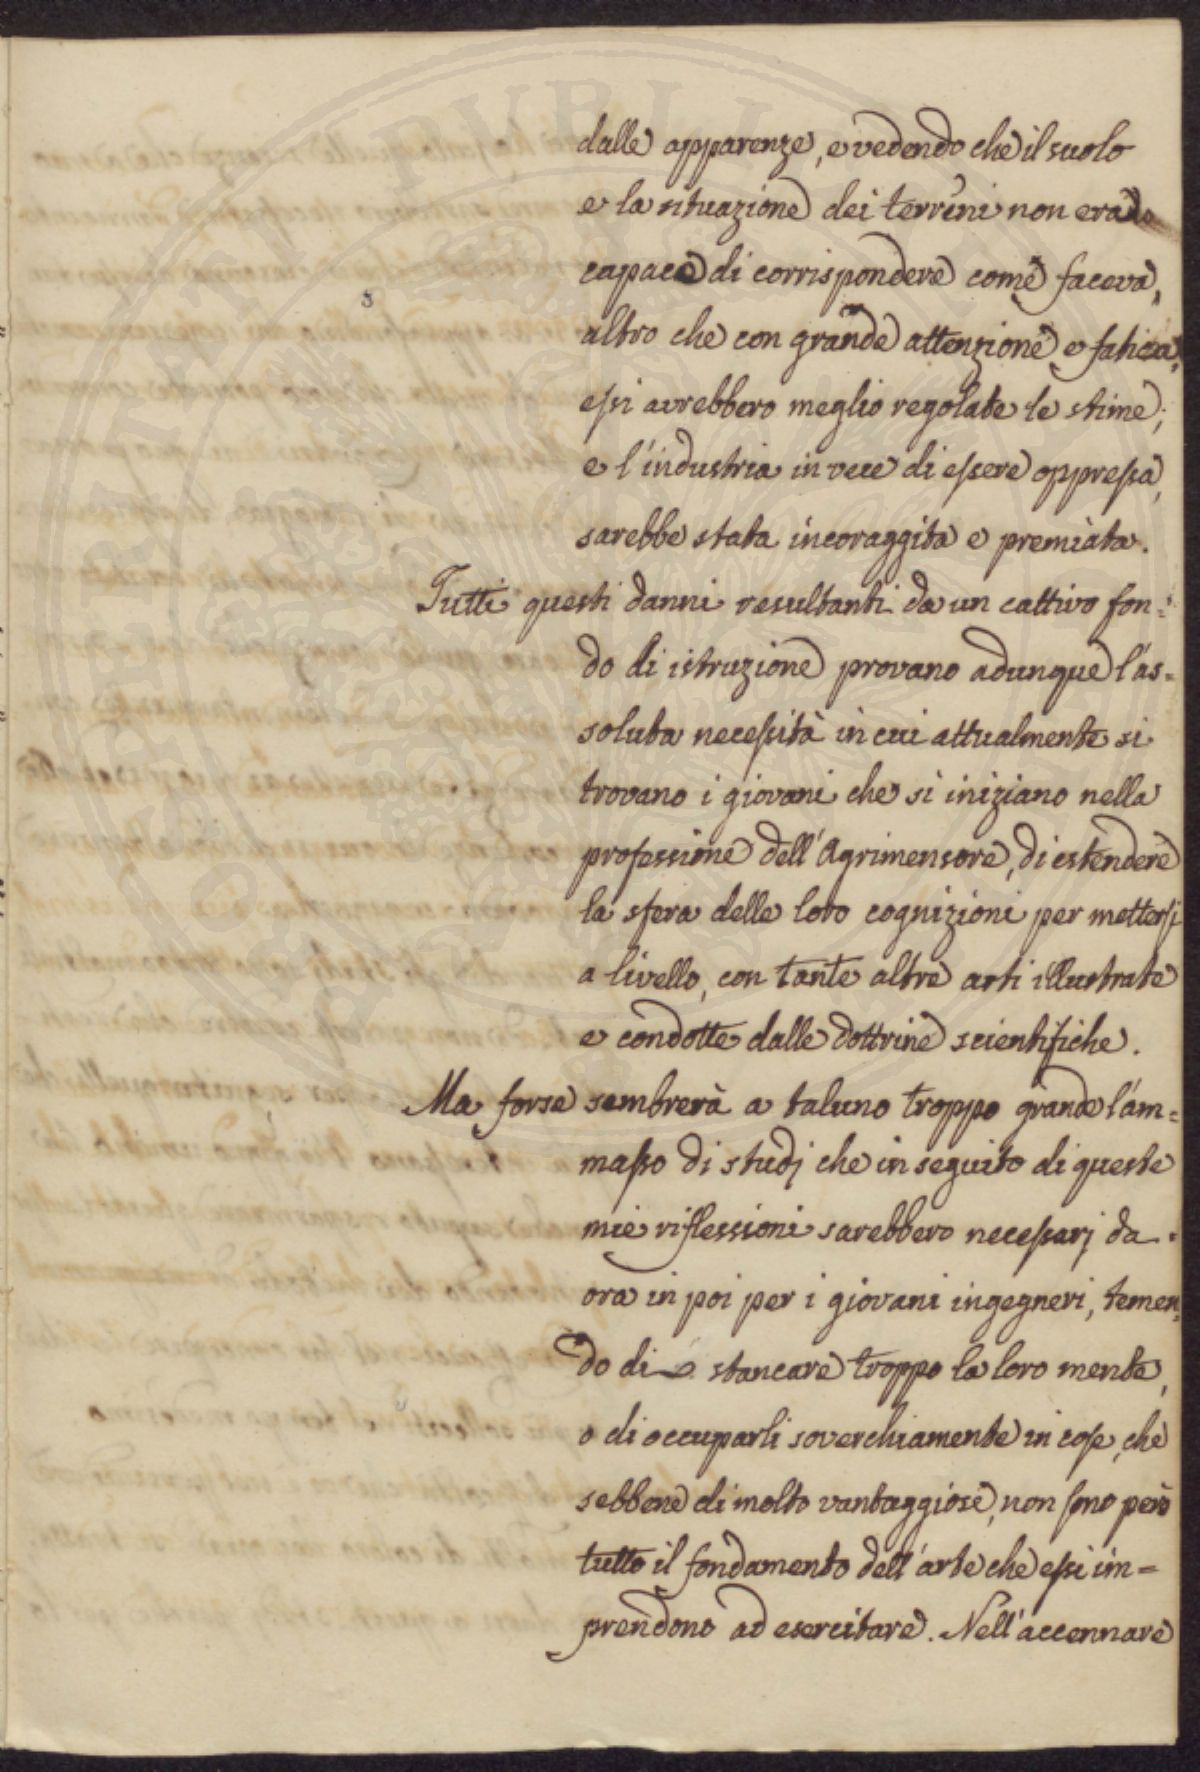 dalle apparenze, e vedendo che il suolo
e la situazione dei terreni non era
capace di corrispondere come faceva,
altro che con grande attenzione e fatica,
essi avrebbero meglio regolate le stime;
e l'industria in vece di essere oppressa,
sarebbe stata incoraggita e premiata.
Tutti questi danni resultanti da un cattivo fon=
do di istruzione provano adunque l'as=
soluta necessità in cui attualmente si
trovano i giovani che si iniziano nella
professione dell'Agrimensore, di estendere
la sfera delle loro cognizioni per mettersi
a livello, con tante altre arti illustrate
e condotte dalle dottrine scientifiche.
Ma forse sembrerà a taluno troppo grande l'am=
masso di studj che in seguito di queste
mie riflessioni sarebbero necessarj da
ora in poi per i giovani ingegneri, temen=
do di stancare troppo la loro mente,
o di occuparli soverchiamente in cose, che
sebbene di molto vantaggiose, non sono però
tutto il fondamento dell'arte che essi im=
prendono ad esercitare. Nell'accennare